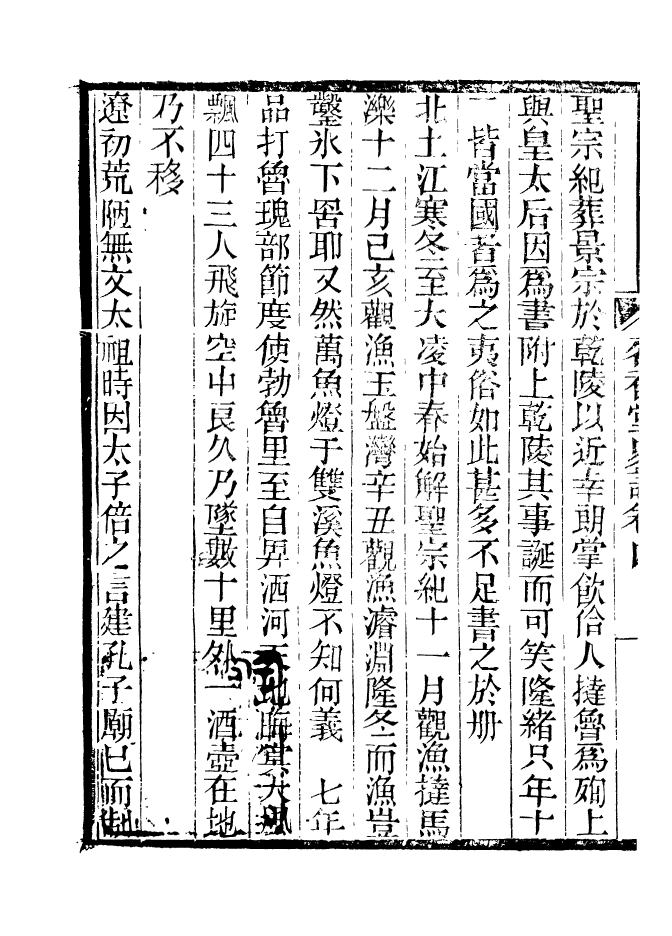 卷四
聖宗紀葬景宗於乾陵以近幸朗掌飲伶人撻魯爲殉上
與皇太后因爲書附上乾陵其事誕而可笑隆緒只年十
一皆當國者爲之夷俗如此甚多不足書之於册
北土江寒冬至大凌中春始解聖宗紀十一月觀漁撻馬
濼十二月己亥觀漁玉盤灣辛丑觀漁濬淵隆冬而漁豈
鑿氷下罟耶又然萬魚燈于雙溪魚燈不知何義 七年
品打魯瑰部節度使勃魯里至自鼻洒河天地晦冥大風
飄四十三人飛旋空中良久乃墜數十里外一酒壺在地
乃不移
遼初荒陋無文太祖時因太子倍之言建孔子廟已而制